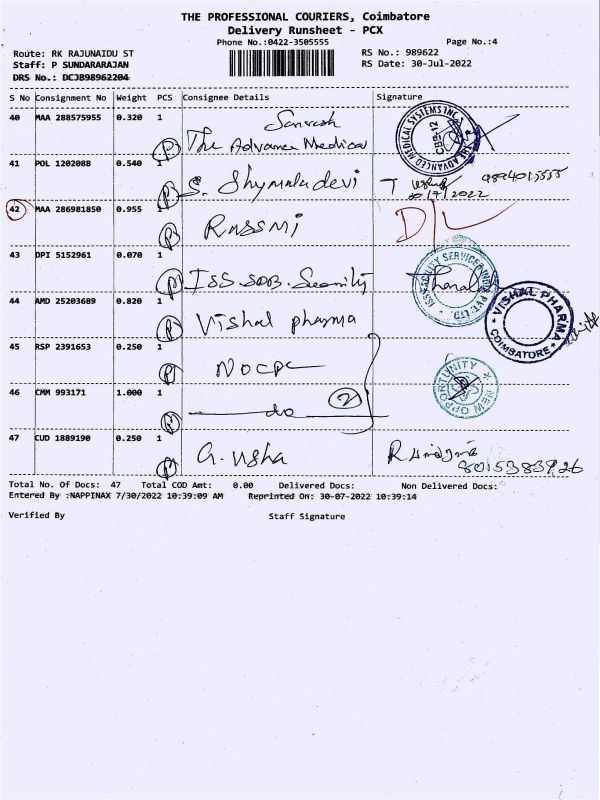 THE PROFESSIONAL COURIERS, Coimbatore
Delivery Runsheet - PCX
Phone No.:0422-3505555
Page No.:4
Route: RK RAJUNAIDU ST
RS No.: 989622
Staff: P SUNDARARAJAN
RS Date: 30-Jul-2022
DRS No.: DCJB98962204
S No Consignment No Weight PCS Consignee Details Signature
40 MAA 288575955 0.320 1
The Advance Medical
THE ADVANCED MEDICAL SYSTEMS INC. CBE-12
41 POL 1202088 0.540 1
S. Shymala devi
9894015555
30/7/2022
42 MAA 286981850 0.955 1
RASSMI
D/L
43 DPI 5152961 0.070 1
ISS SDB. Security
ISS FACILITY SERVICES INDIA PVT. LTD
44 AMD 25203689 0.820 1
Vishal pharma
VISHAL PHARMA COIMBATORE
45 RSP 2391653 0.250 1
NOCPC
NEW OPPORTUNITY
46 CMM 993171 1.000 1
do
2
47 CUD 1889190 0.250 1
G. Usha
8015383926
Total No. Of Docs: 47 Total COD Amt: 0.00 Delivered Docs: Non Delivered Docs:
Entered By :NAPPINAX 7/30/2022 10:39:09 AM Reprinted On: 30-07-2022 10:39:14
Verified By
Staff Signature